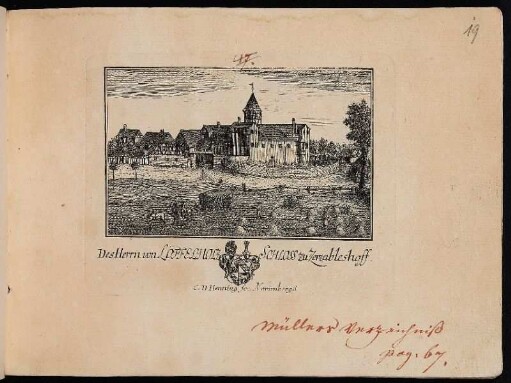 19
47.
Des Herrn von LOEFFELHOLZ SCHLOS zu Zerzableshoff
C. D. Henning, fec. Norimbergæ.
Müllers Verzeichniß
pag. 67.